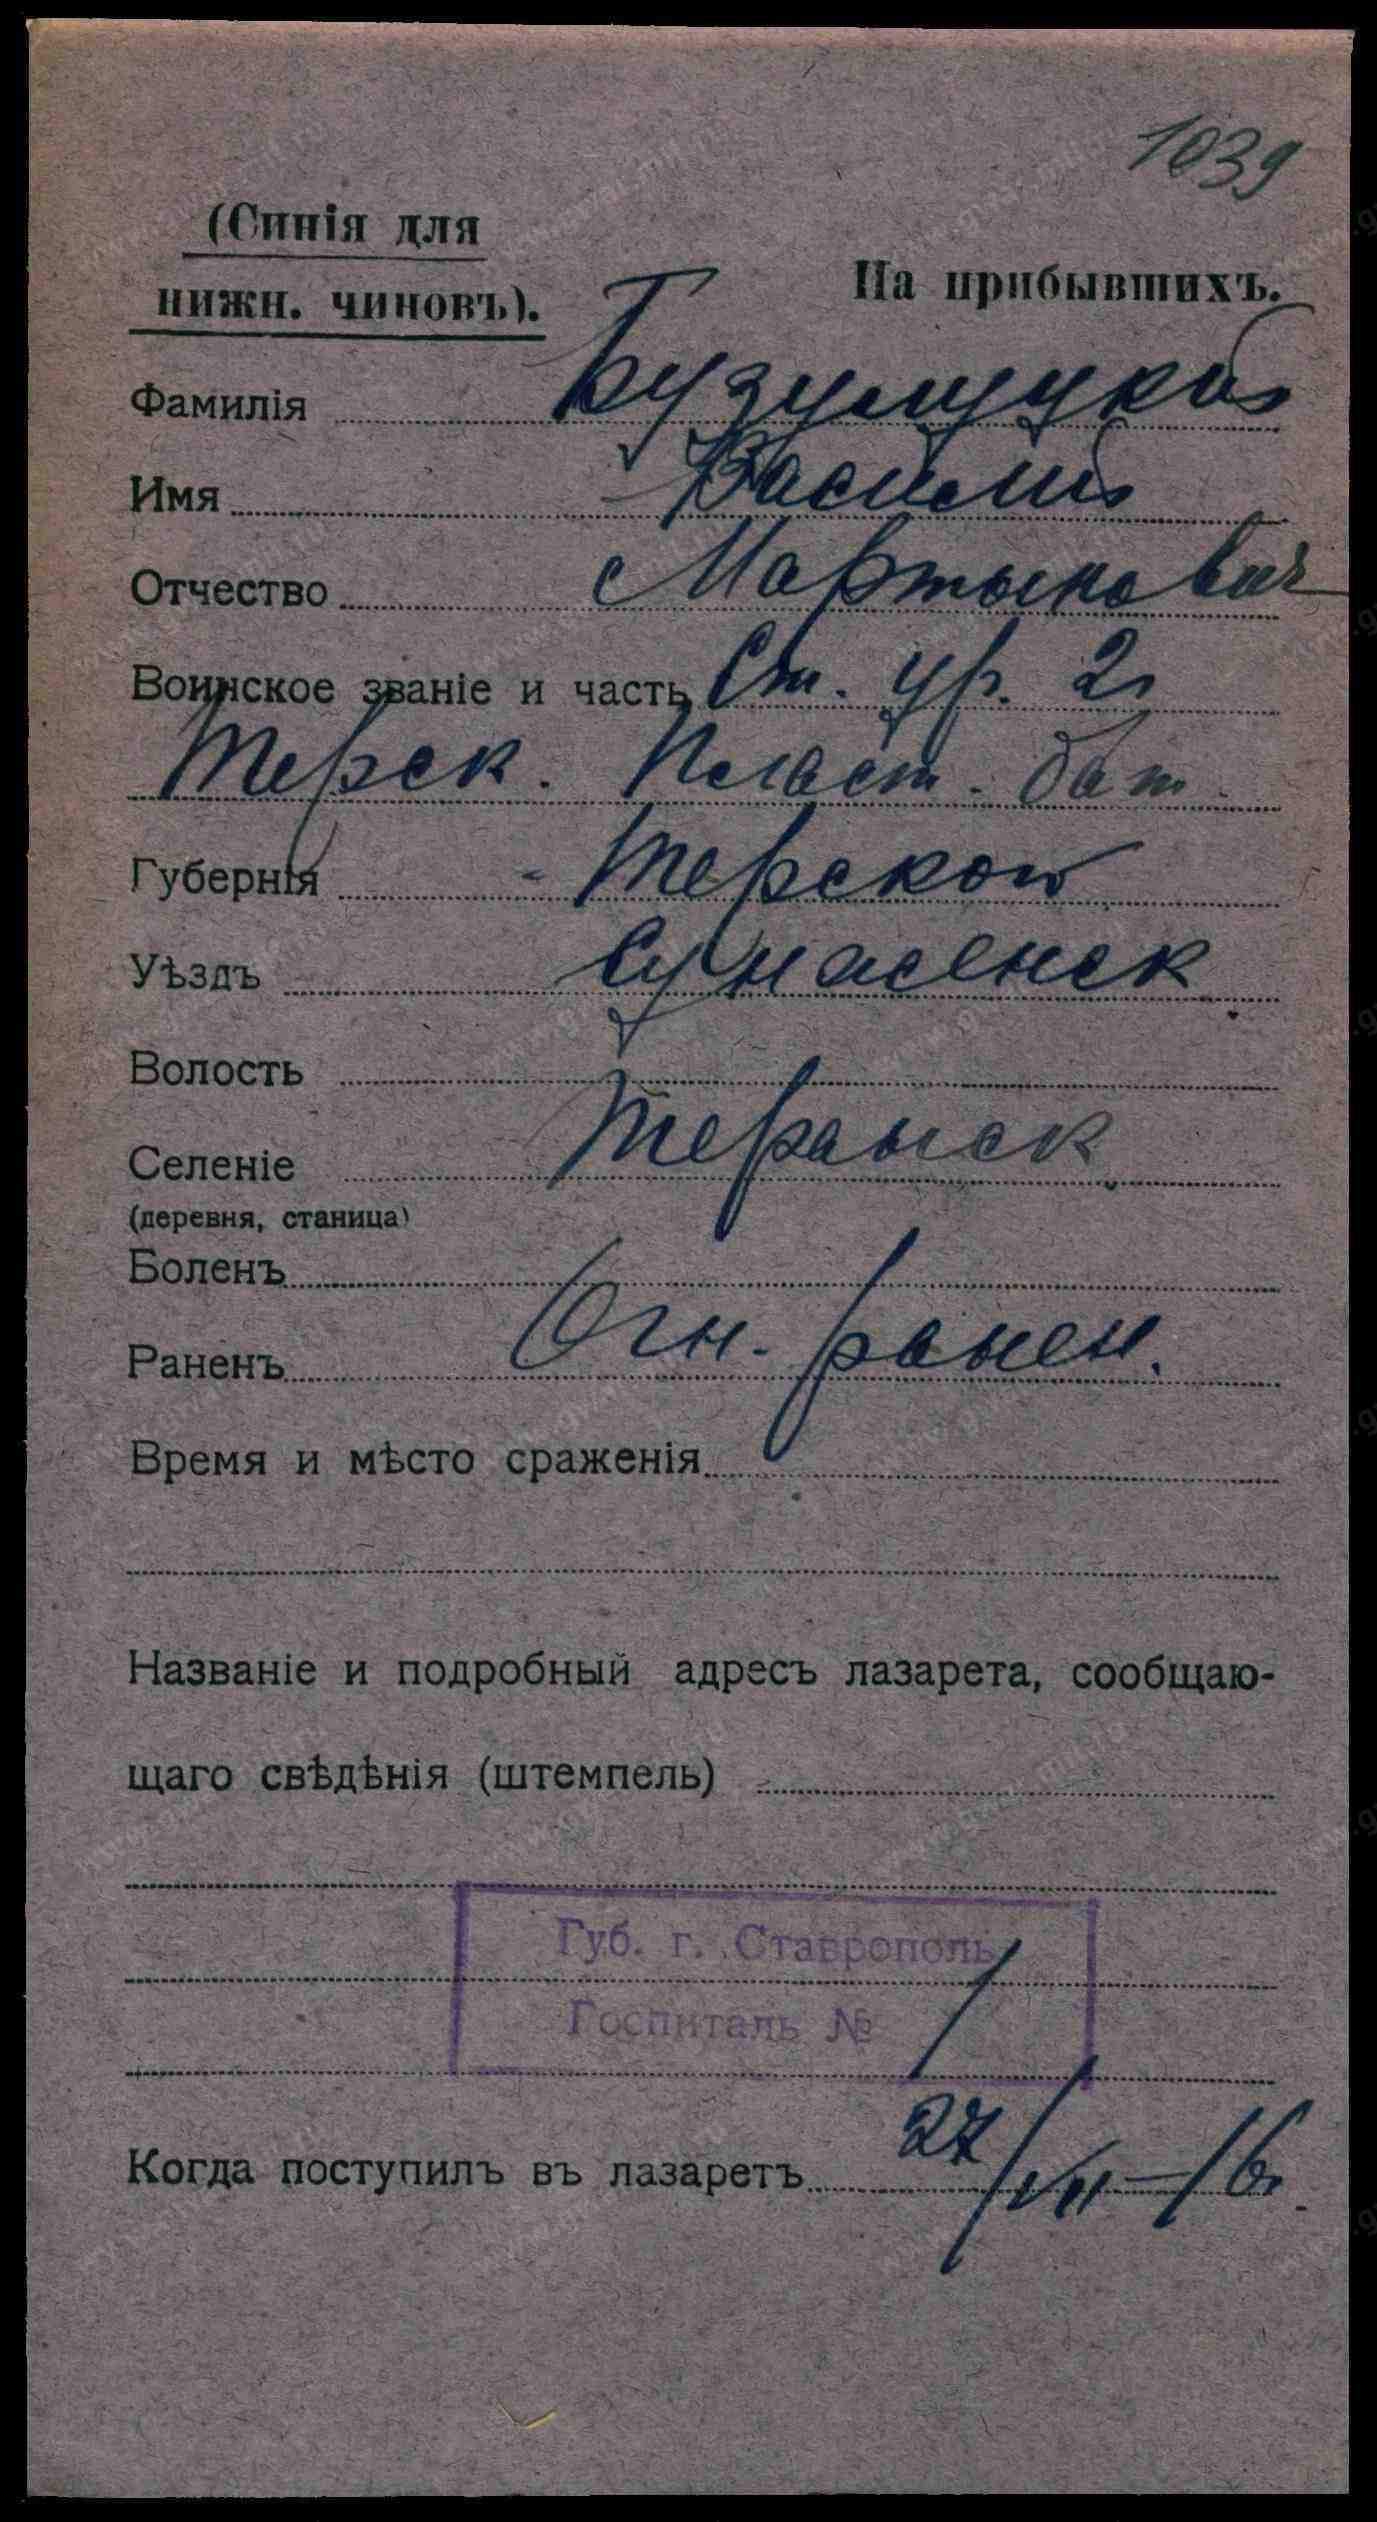 1039
(Синія для
нижн. чиновъ).
На прибывшихъ.
Фамилія Бузулуцков
Имя Василий
Отчество Мартынович
Воинское званіе и часть Ст. ур. 2
Терск. Пласт. бат.
Губернія Терской
Уѣздъ Сунженск
Волость
Селеніе Терск
(деревня, станица)
Боленъ
Раненъ Огн. ранен.
Время и мѣсто сраженія
Названіе и подробный адресъ лазарета, сообщаю-
щаго свѣдѣнія (штемпель)
Губ. г. Ставрополь
Госпиталь № 1
Когда поступилъ въ лазаретъ 27/VII-16.